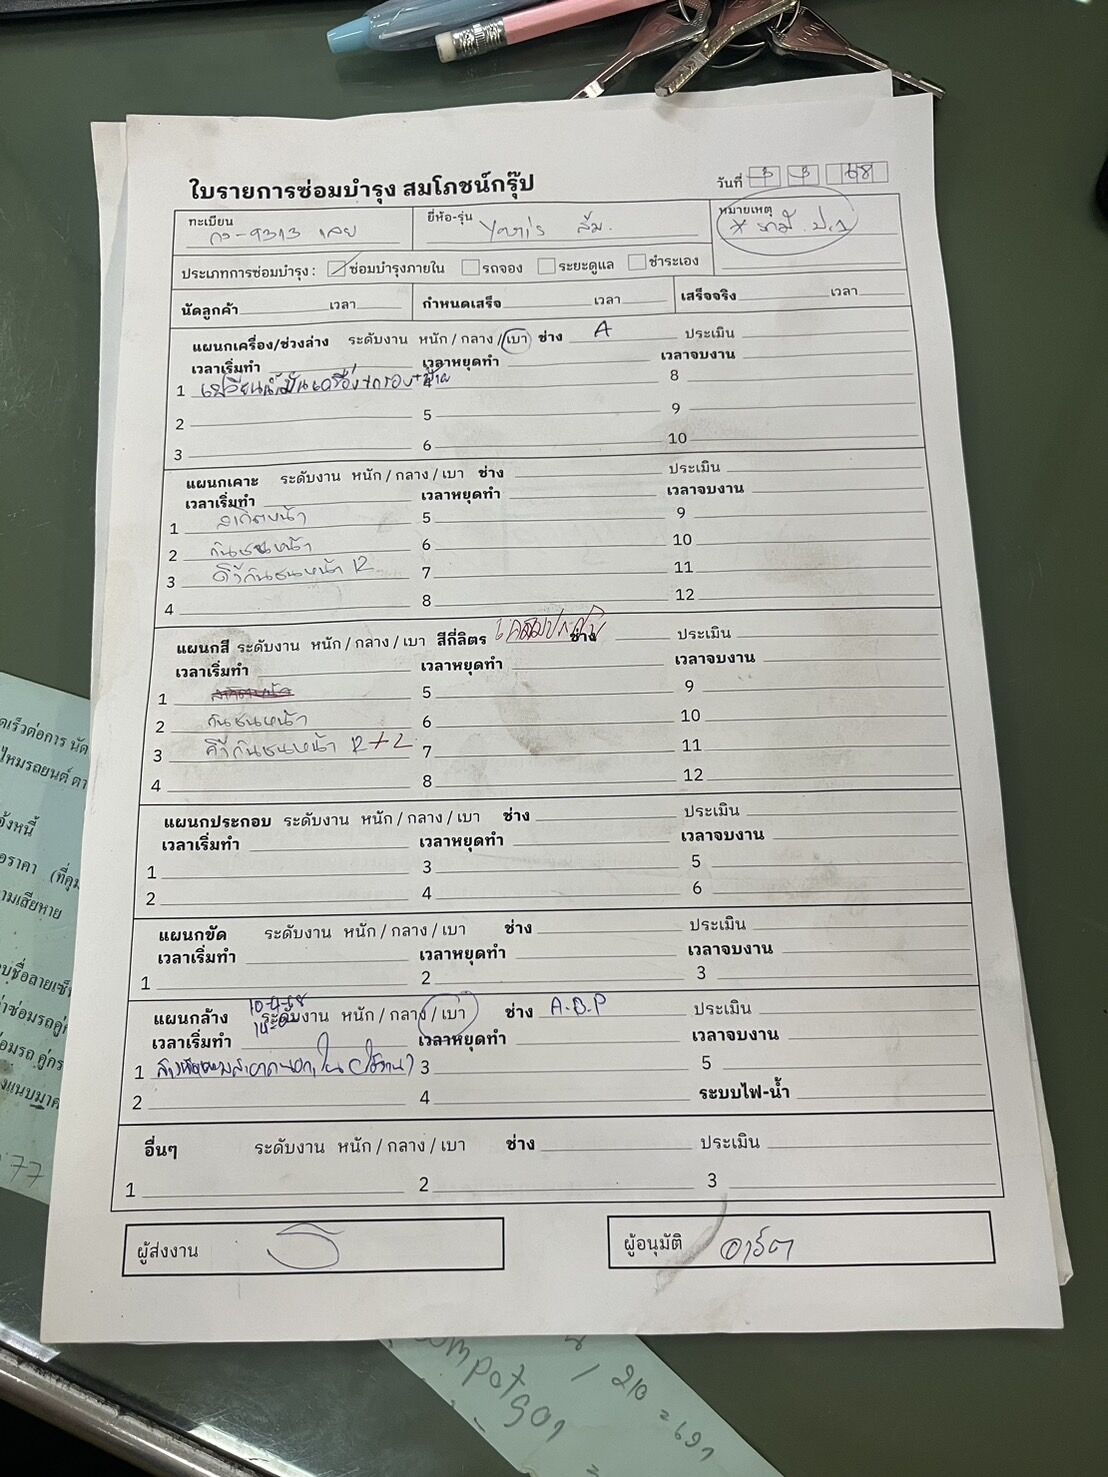 ใบรายการซ่อมบำรุง สมโภชน์กรุ๊ป
วันที่ 3 3 68
ทะเบียน กว-9313 เลย
ยี่ห้อ-รุ่น Yaris ส้ม.
หมายเหตุ
ประเภทการซ่อมบำรุง : ซ่อมบำรุงภายใน รถจอง ระยะดูแล ชำระเอง
นัดลูกค้า เวลา กำหนดเสร็จ เวลา เสร็จจริง เวลา
แผนกเครื่อง/ช่วงล่าง ระดับงาน หนัก / กลาง / เบา ช่าง A ประเมิน
เวลาเริ่มทำ เวลาหยุดทำ เวลาจบงาน
1 เปลี่ยนน้ำมันเครื่อง+กรอง 8
2 5 9
3 6 10
แผนกเคาะ ระดับงาน หนัก / กลาง / เบา ช่าง ประเมิน
เวลาเริ่มทำ เวลาหยุดทำ เวลาจบงาน
1 สเกิตหน้า 5 9
2 กันชนหน้า 6 10
3 คิ้วกันชนหน้า R 7 11
4 8 12
แผนกสี ระดับงาน หนัก / กลาง / เบา สีกี่ลิตร ช่าง ประเมิน
เวลาเริ่มทำ เวลาหยุดทำ เวลาจบงาน
1 สเกิตหน้า 5 9
2 กันชนหน้า 6 10
3 คิ้วกันชนหน้า R+L 7 11
4 8 12
แผนกประกอบ ระดับงาน หนัก / กลาง / เบา ช่าง ประเมิน
เวลาเริ่มทำ เวลาหยุดทำ เวลาจบงาน
1 3 5
2 4 6
แผนกขัด ระดับงาน หนัก / กลาง / เบา ช่าง ประเมิน
เวลาเริ่มทำ เวลาหยุดทำ เวลาจบงาน
1 2 3
แผนกล้าง ระดับงาน หนัก / กลาง / เบา ช่าง A.B.P ประเมิน
เวลาเริ่มทำ เวลาหยุดทำ เวลาจบงาน
1 3 5
2 4 ระบบไฟ-น้ำ
อื่นๆ ระดับงาน หนัก / กลาง / เบา ช่าง ประเมิน
1 2 3
ผู้ส่งงาน
ผู้อนุมัติ อาร์ต
/ 210 = 691